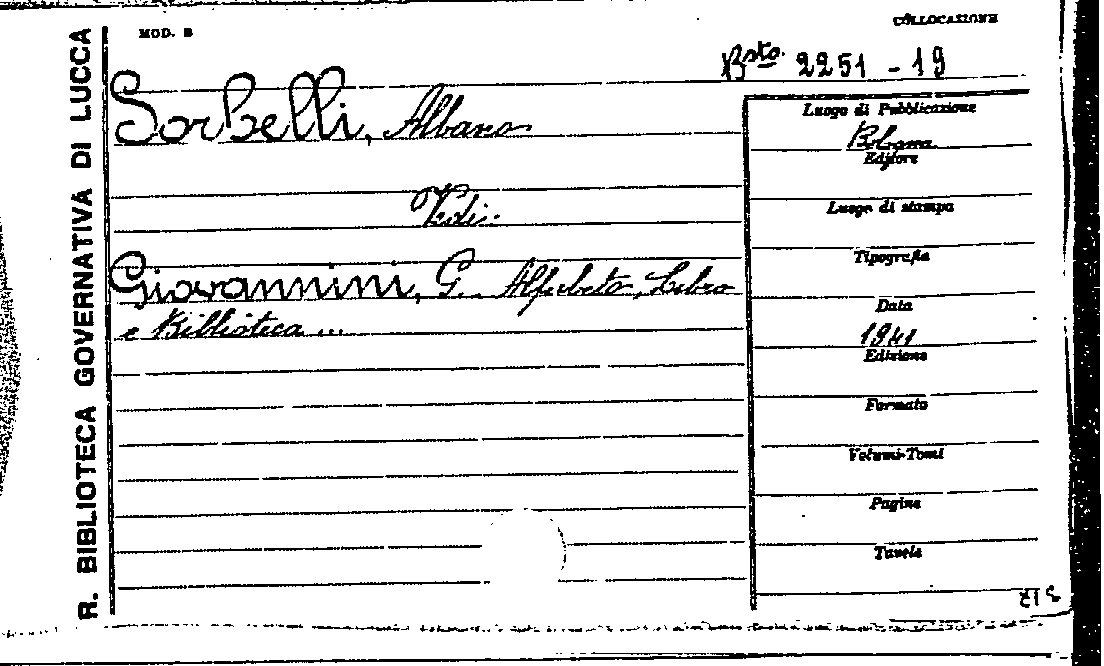 MOD. B
COLLOCAZIONE
R. BIBLIOTECA GOVERNATIVA DI LUCCA
Bsta. 2251 - 19
Sorbelli, Albano
Vedi:
Giovannini, G. Alfabeto, Libro
e Biblioteca ...
Luogo di Pubblicazione
Bologna
Editore
Luogo di stampa
Tipografia
Data
1941
Edizione
Formato
Volumi-Tomi
Pagine
Tavole